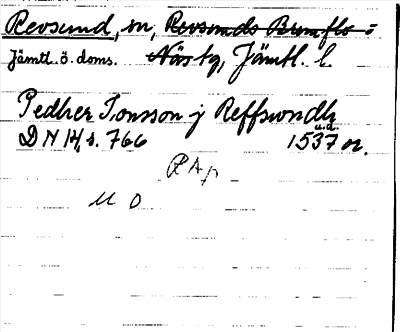 Revsund, sn, Revsunds Brunflo =
Jämtl. ö. doms. Näs tg, Jämtl. l.
Pedher Jonsson j Reffswndh
u.d.
DN 14, s. 766 1537 or.
RAp
U O